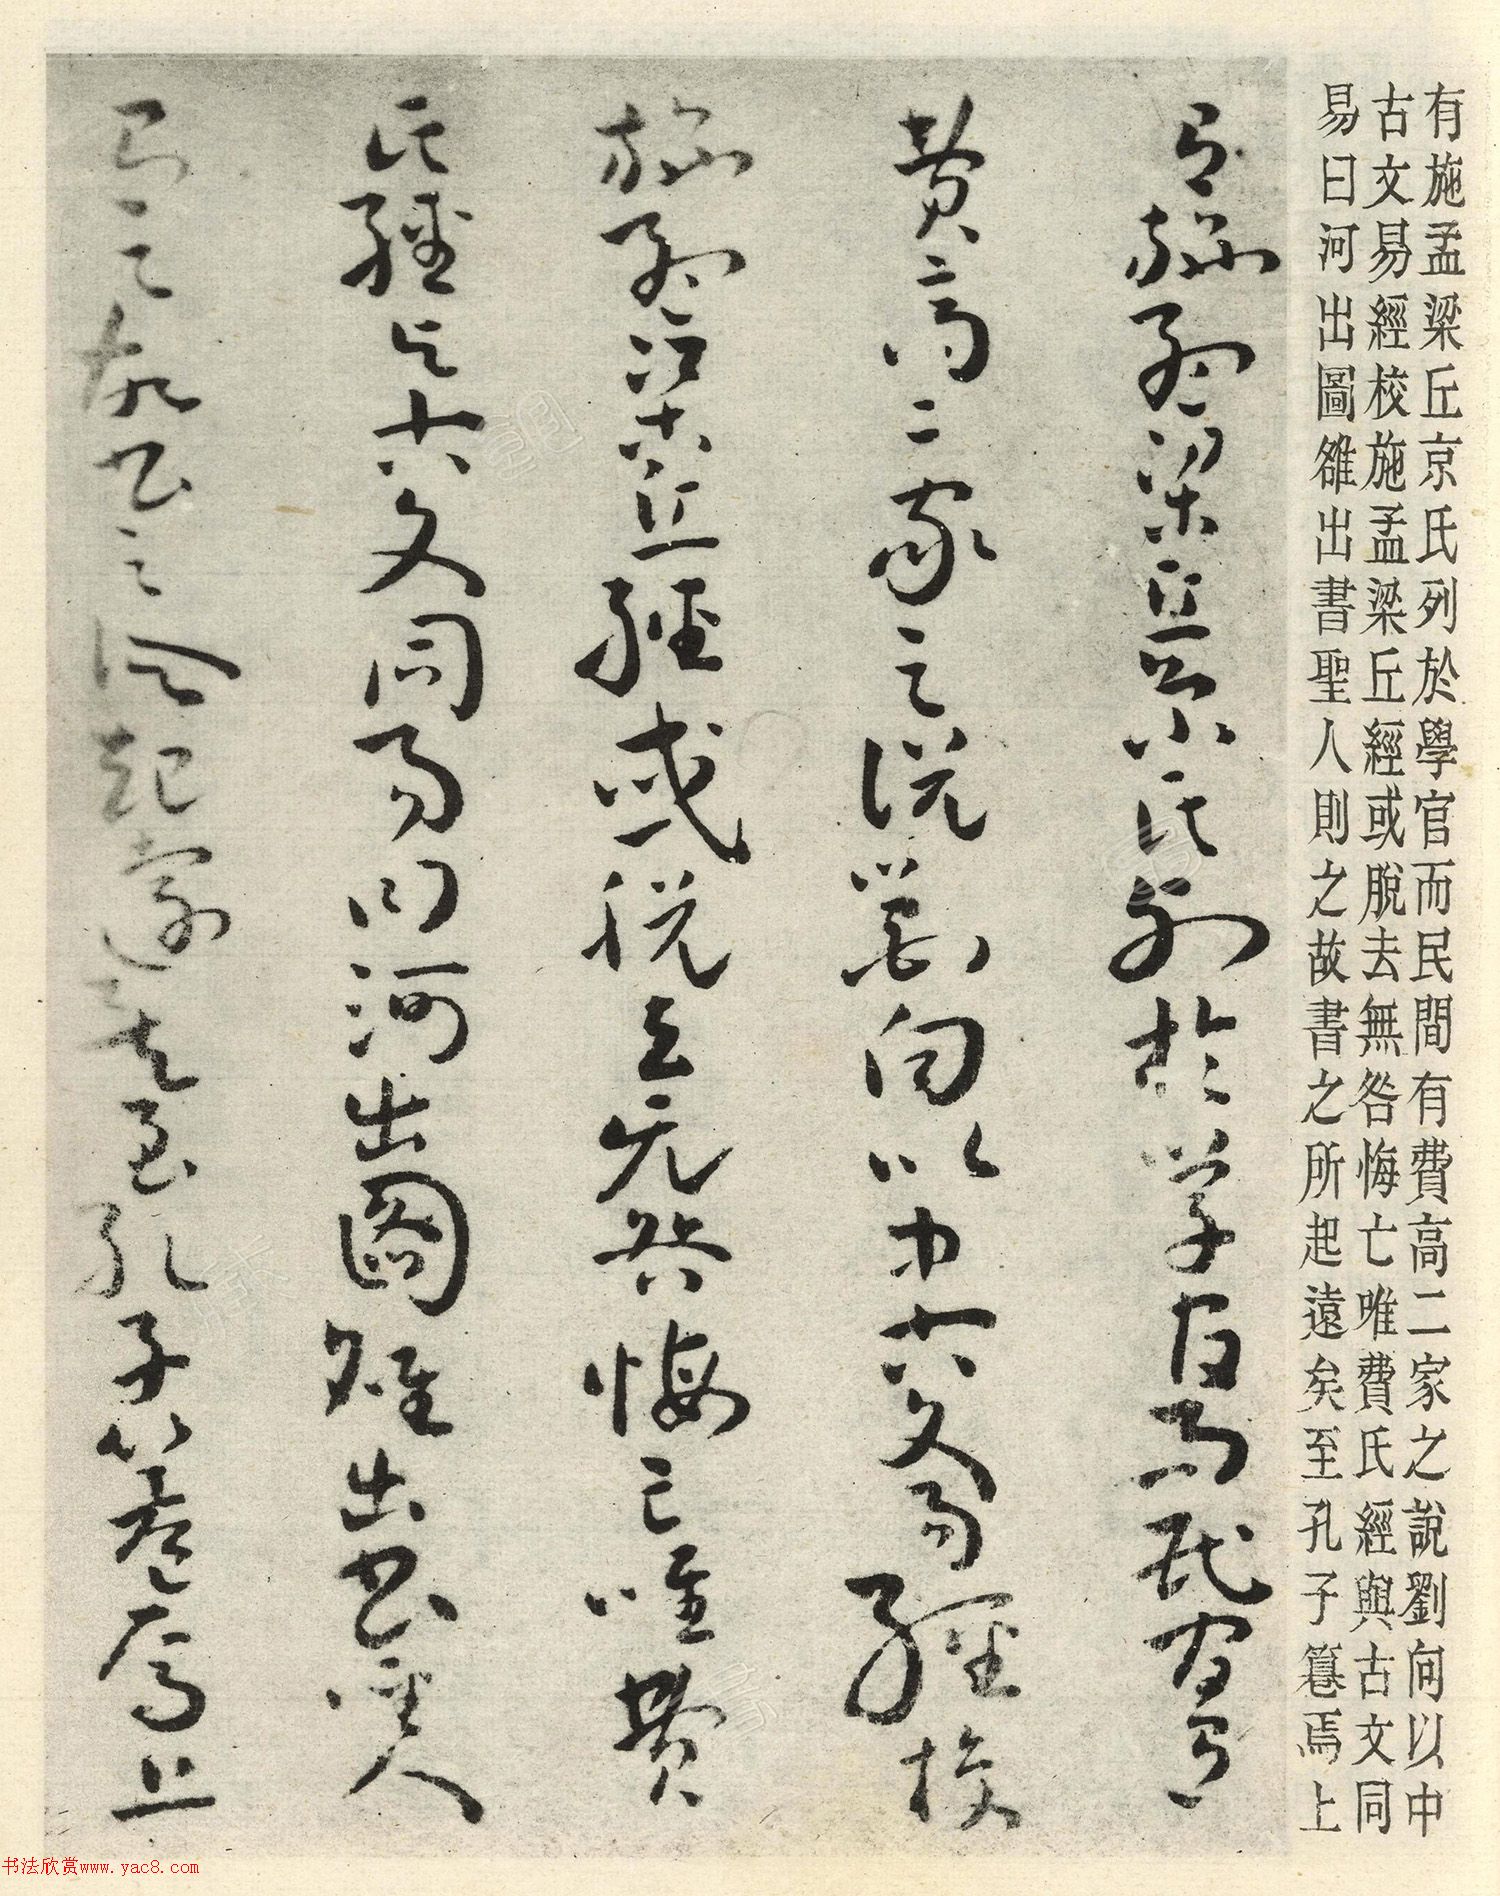 有施孟梁丘京氏列於學官而民間有費高二家之說劉向以中
古文易經校施孟梁丘經或脫去無咎悔亡唯費氏經與古文同
易曰河出圖雒出書聖人則之故書之所起遠矣至孔子篹焉上
有施孟梁丘京氏列於学官而民間有
費高二家之說劉向以中古文易經校
施孟梁丘經或脫去无咎悔亡唯費
氏經与古文同易曰河出圖雒出書聖人
則之故書之所起遠矣至孔子篹焉上
书法欣赏www.yac8.com